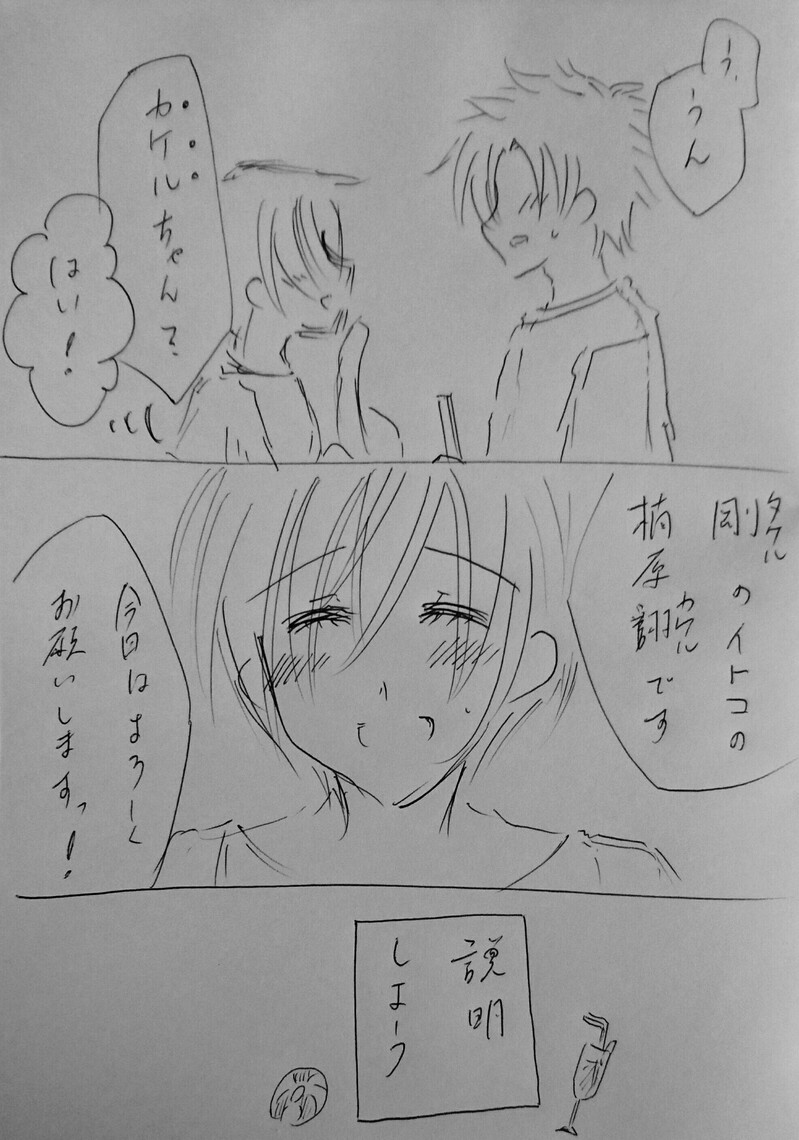 う、
うん
カケルちゃん?
はい!
剛タケルのイトコの
楠原翔カケルです
今日はよろしく
お願いしますっ!
説明
しよーう